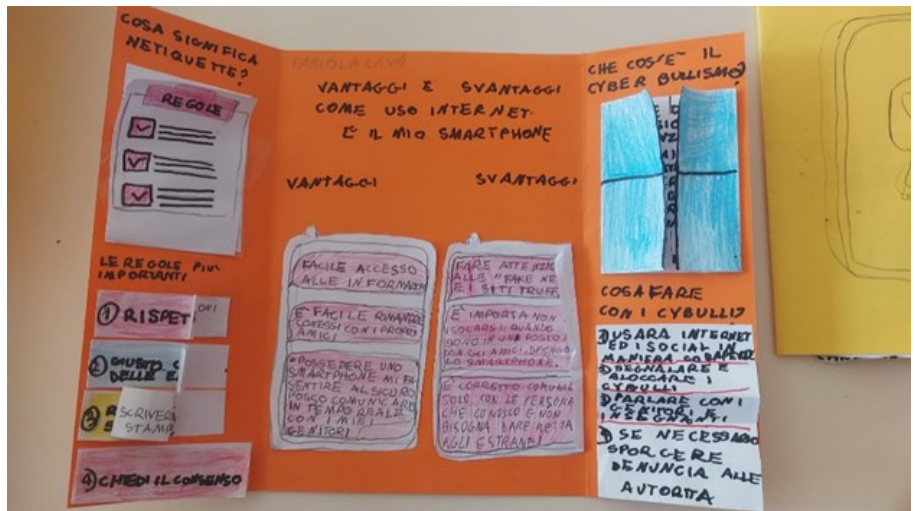 COSA SIGNIFICA
NETIQUETTE?
REGOLE
LE REGOLE PIU'
IMPORTANTI
① RISPET
② GIUSTO
DELLE
③
SCRIVERE
STAMP
④ CHIEDI IL CONSENSO
FABIOLA CAVA
VANTAGGI E SVANTAGGI
COME USO INTERNET.
E IL MIO SMARTPHONE
VANTAGGI
SVANTAGGI
FACILE ACCESSO
ALLE INFORMAZ
E' FACILE RIMANERE
CONESSI CON I PROPRI
AMICI
POSSEDERE UNO
SMARTPHONE MI FA
SENTIRE AL SICURO
POSCO COMUNICARE
IN TEMPO REALE
CON I MIEI
GENITORI
FARE ATTENZIO
ALLE "FAKE NE
E I SITI TRUFF
E' IMPORTA NON
ISOLARSI: QUANDO
SONO IN UN POSTO
CON GLI AMICI, SPENGO
LO SMARTPHONE.
E' CORRETTO COMUNIC
SOLO CON LE PERSONE
CHE CONOSCO E NON
BISOGNA DARE RETTA
AGLI ESTRANEI
CHE COS'E' IL
CYBER BULLISMO?
COSA FARE
CON I CYBULLI?
1) USARA INTERNET
ED I SOCIAL IN
MANIERA
2) SEGNALARE E
BLOCCARE I
CYBULLI
3) PARLARE CON I
GENITORI E
INSEGNANTI
4) SE NECESSARIO
SPORGERE
DENUNCIA ALLE
AUTORITA